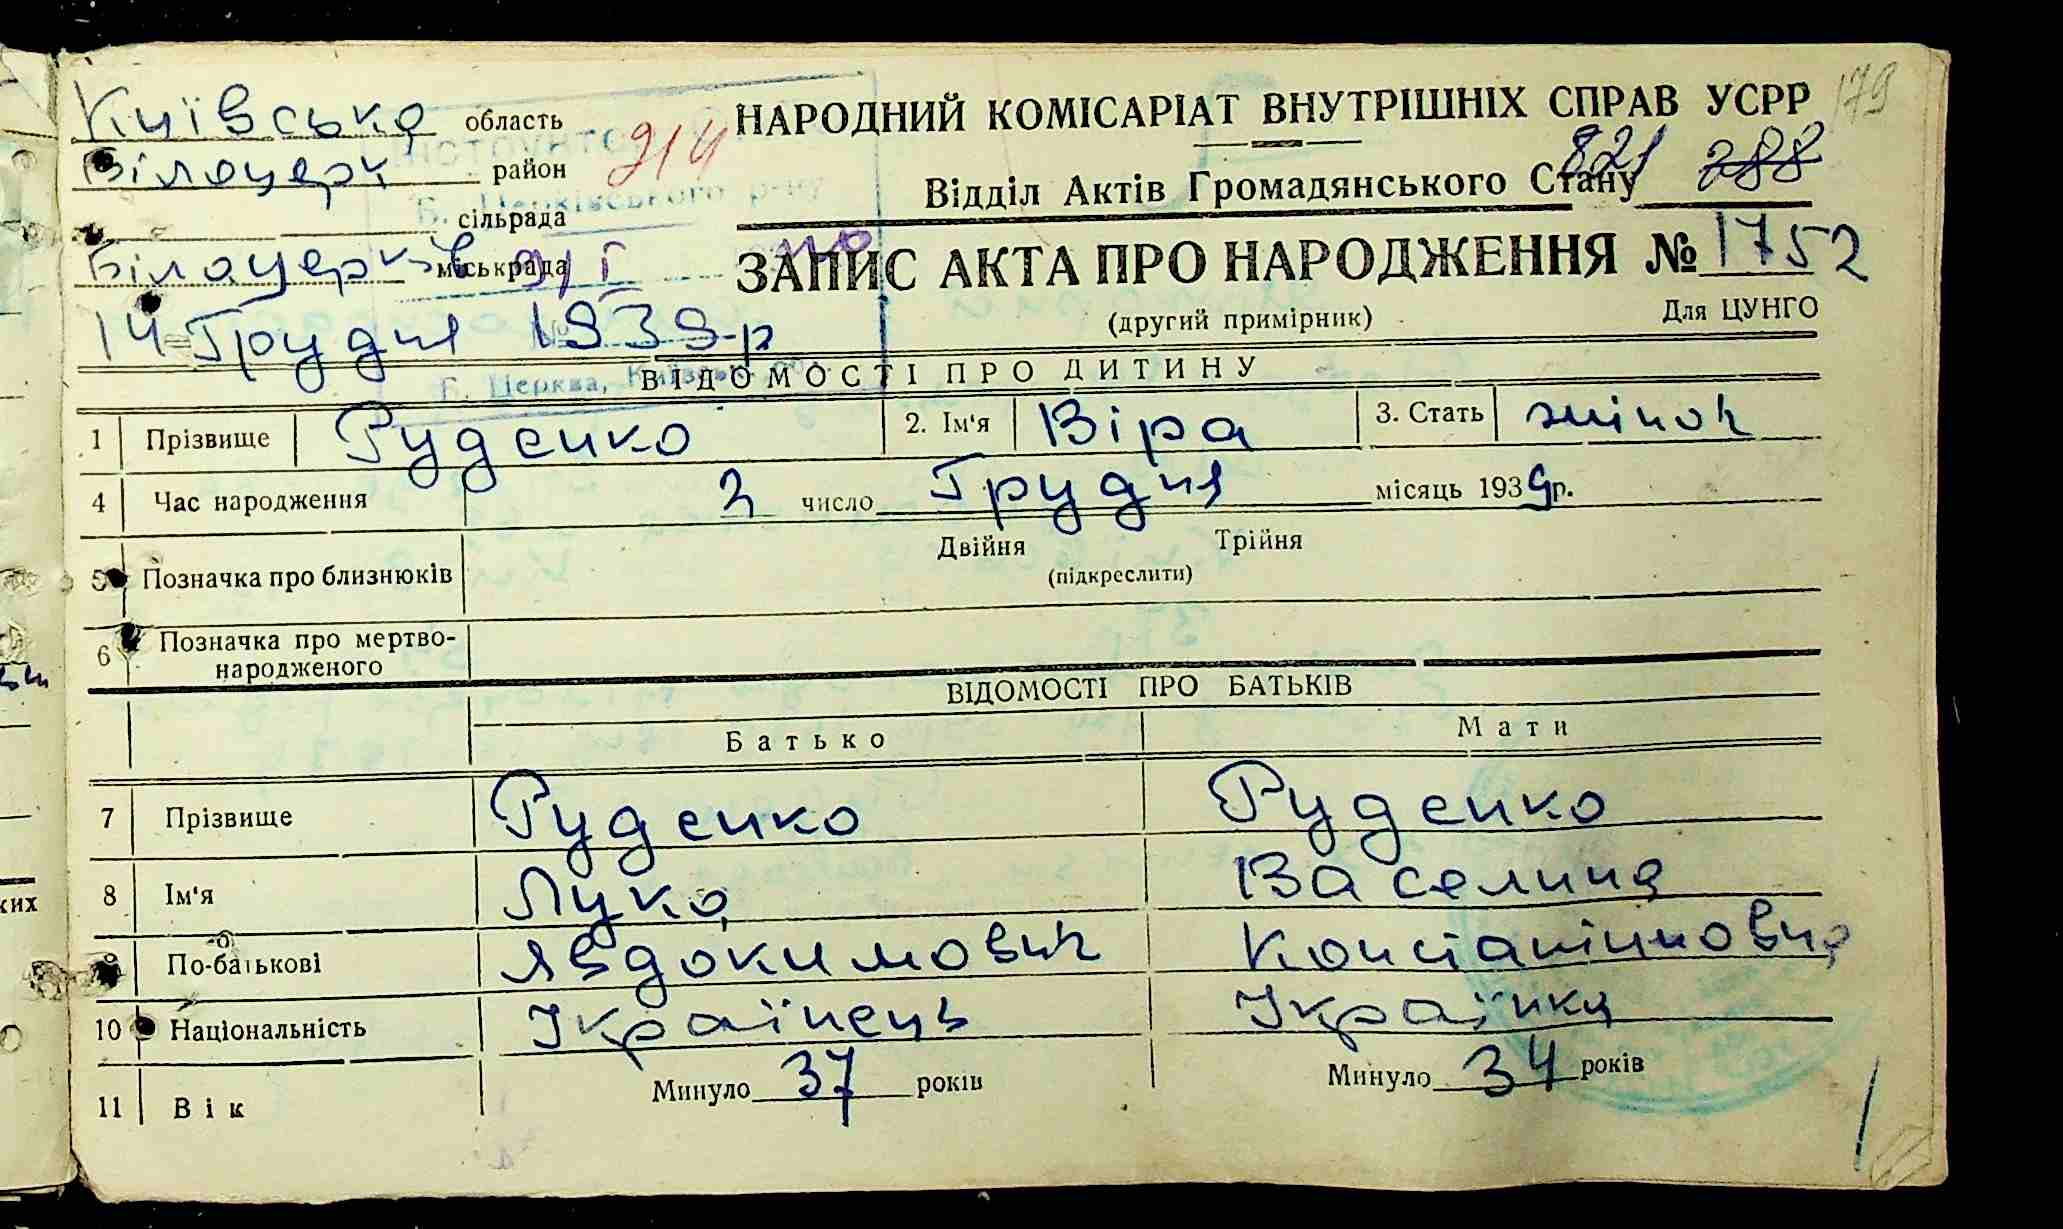 179
Київська область
Білоцерк район 914
сільрада
Білоцерків міськрада
14 Грудня 1939-р
НАРОДНИЙ КОМІСАРІАТ ВНУТРІШНІХ СПРАВ УСРР
Відділ Актів Громадянського Стану 821 288
ЗАПИС АКТА ПРО НАРОДЖЕННЯ № 1752
(другий примірник) Для ЦУНГО
Б. Церква,
ВІДОМОСТІ ПРО ДИТИНУ
1 Прізвище Руденко 2. Ім'я Віра 3. Стать жіноч
4 Час народження 2 число Грудня місяць 1939р.
5 Позначка про близнюків Двійня Трійня
(підкреслити)
6 Позначка про мертво-
народженого
ВІДОМОСТІ ПРО БАТЬКІВ
Батько Мати
7 Прізвище Руденко Руденко
8 Ім'я Лука Васелина
9 По-батькові Явдокимович Константиновна
10 Національність Українець Українка
11 Вік Минуло 37 років Минуло 34 років
ких